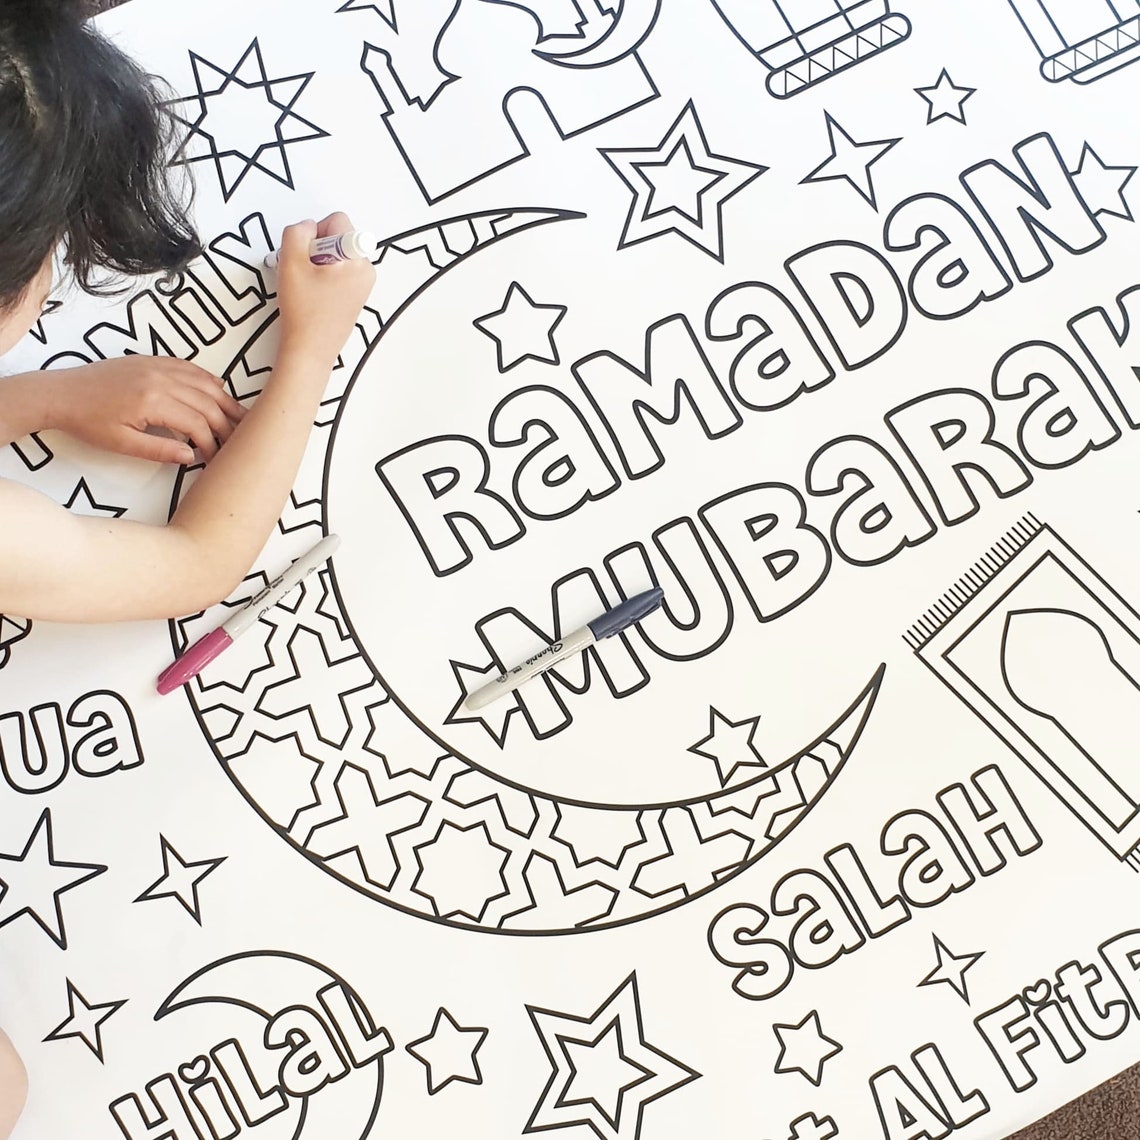 FAMiLY
RaMaDaN
MUBaRaK
Sharpie
Ua
SaLaH
HiLaL
AL FitR